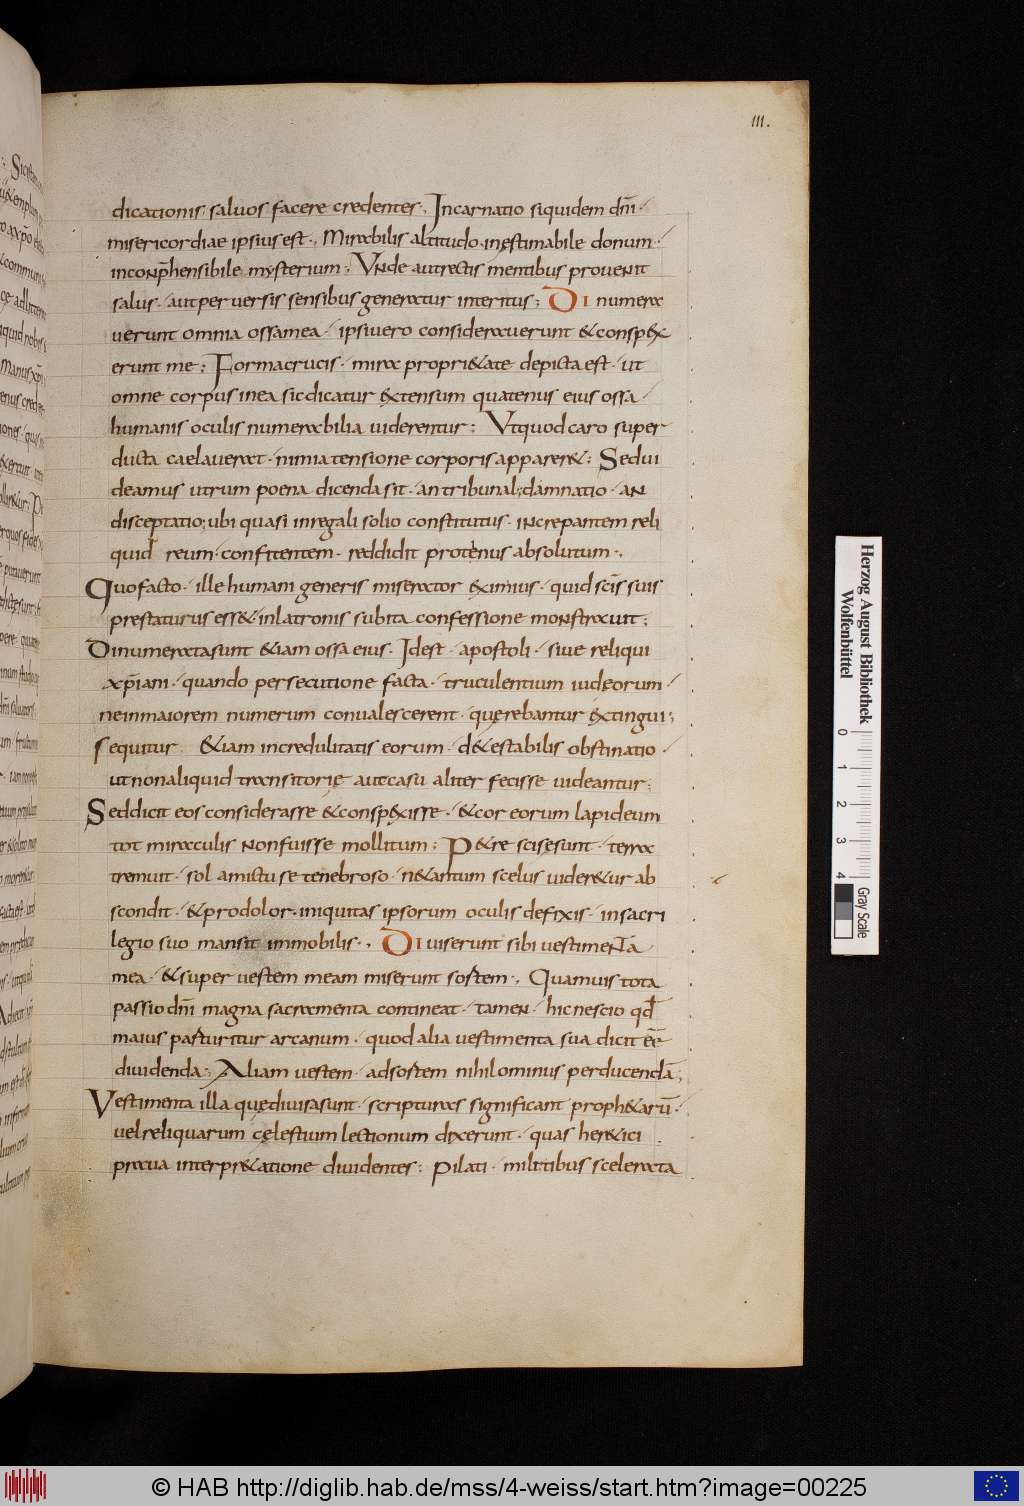 111.
dicationis· saluos facere credentes·, Incarnatio siquidem dn̄i·
misericordiae ipsius est·, Mirabilis altitudo· inęstimabile donum·
inconp̄hensibile mysterium: Vnde aut rectis mentibus prouenit
salus· aut peruersis sensibus generatur interitus; Dinumera
uerunt omnia ossa mea· ipsi uero considerauerunt &conspex
erunt me: Forma crucis· mira propri&ate depicta est· ut
omne corpus in ea sic dicatur extensum quatenus eius ossa
humanis oculis numerabilia uiderentur: Vt quod caro super
ducta caelauerat· nimia tensione corporis apparer&: Sed ui
deamus utrum poena dicenda sit· an tribunal; damnatio· an
disceptatio; ubi quasi in regali solio constitutus· increpantem reli
quid reum· confitentem· reddidit protenus absolutum·,
Quo facto· ille humani generis miserator eximius· quid sc̄is suis
prestaturus ess&· in latronis subita confessione monstrauit:
Dinumerata sunt &iam ossa eius· Idest· apostoli· siue reliqui
xp̄iani· quando persecutione facta· truculentium iudęorum·
ne in maiorem numerum conualescerent· quęrebantur extingui;
sequitur &iam incredulitatis eorum· d&estabilis obstinatio·
ut non aliquid transitorię aut casu aliter fecisse uideantur:
Sed dicit eos considerasse &conspexisse·, &cor eorum lapideum
tot miraculis non fuisse mollitum: P&re scisę sunt· terra
tremuit· sol amictu se tenebroso· n&antum scelus uider&ur ab
scondit· &pro dolor· iniquitas ipsorum oculis defixis· in sacri
legio suo mansit immobilis·, Diuiserunt sibi uestimenta
mea· &super uestem meam miserunt sortem·, Quamuis tota
passio dn̄i magna sacramenta contineat· tamen· hic nescio qđ
maius parturitur arcanum· quod alia uestimenta sua dicit ēē
diuidenda: Aliam uestem· ad sortem nihilominus perducendā;
Vestimenta illa quę diuisa sunt· scripturas significant proph&arū·
uel reliquarum cęlestium lectionum dixerunt· quas her&ici
praua interpr&atione diuidentes: Pilati· militibus scelerata
Herzog August Bibliothek
Wolfenbüttel
0 1 2 3 4
Gray Scale
© HAB http://diglib.hab.de/mss/4-weiss/start.htm?image=00225